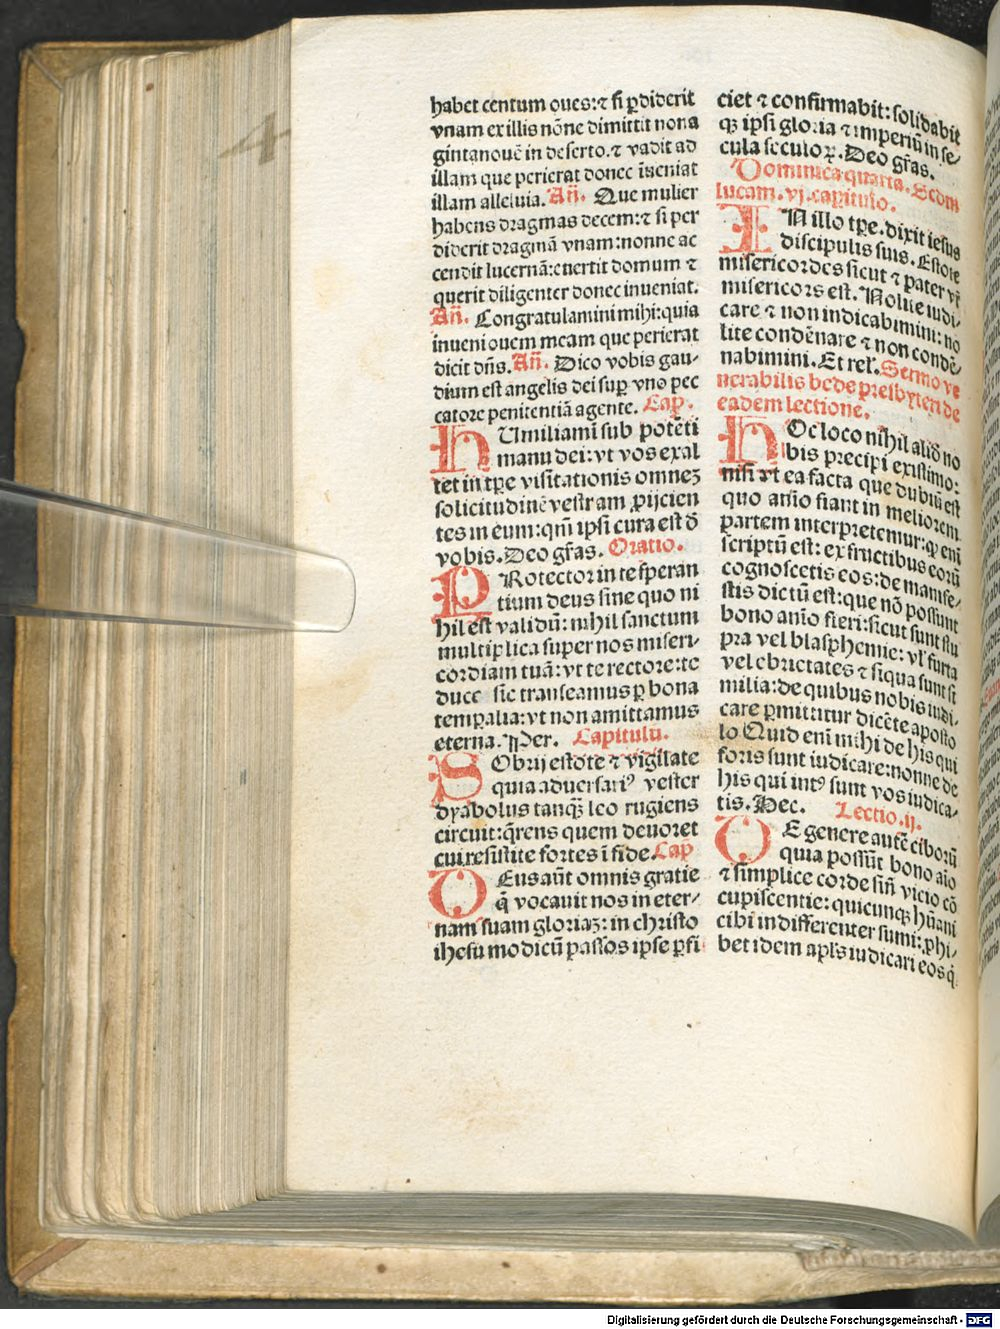 habet centum oues:⁊ si ꝑdiderit
vnam ex illis nõne dimittit nona
gintanouẽ in deserto.⁊ vadit ad
illam que perierat donec ĩueniat
illam alleluia. Añ. Que mulier
habens dragmas decem:⁊ si per
diderit dragmã vnam:nonne ac
cendit lucernã:euertit domum ⁊
querit diligenter donec inueniat.
Añ. Congratulamini mihi:quia
inueni ouem meam que perierat
dicit dñs. Añ. Dico vobis gau-
dium est angelis dei suꝑ vno pec
catore penitentiã agente. Caꝑ.
HUmiliamĩ sub potẽti
manu dei:vt vos exal
tet in tꝑe visitationis omneʒ
solicitudinẽ vestram ꝓijcien
tes in eum:qm̃ ipsi cura est d̃
vobis. Deo gr̃as. Oratio.
PRotector in te speran
tium deus sine quo ni
hil est validũ:nihil sanctum
multiplica super nos miseri-
cordiam tuã:vt te rectore:te
duce sic transeamus ꝑ bona
temꝑalia:vt non amittamus
eterna. Per. Capitulũ.
SObrij estote ⁊ vigilate
quia aduersariꝰ vester
dyabolus tanqʒ̃ leo rugiens
circuit:q̃rens quem deuoret
cui resistite fortes ĩ fide Caꝑ
DEus aũt omnis gratie
q̃ vocauit nos in eter-
nam suam gloriaʒ:in christo
ihesu modicũ passos ipse ꝑfi
ciet ⁊ confirmabit:solidabit
qʒ ipsi gloria ⁊ imperiũ in se-
cula seculoꝝ. Deo gr̃as.
Dominica quarta. Scdm
lucam. vj. capitulo.
IN illo tꝑe. dixit iesus
discipulis suis. Estote
misericordes sicut ⁊ pater vr̃
misericors est. Nolite iudi-
care ⁊ non iudicabimini: no
lite condẽnare ⁊ non condẽ-
nabimini. Et rel̃. Sermo ve
nerabilis bede presbyteri de
eadem lectione.
HOc loco nihil aliđ no
bis precipi existimo:
nisi vt ea facta que dubiũ est
quo aĩo fiant in meliorem
partem interpretemur:ꝙ enĩ
scriptũ est: ex fructibus eorũ
cognoscetis eos:de manife-
stis dictũ est:que nõ possunt
bono aĩo fieri:sicut sunt stu
pra vel blasphemie: vl̃ furta
vel ebrietates ⁊ siqua sunt sĩ
milia:de quibus nobis iudi-
care ꝑmittitur dicẽte aposto
lo Quid enĩ mihi de his qui
foris sunt iudicare:nonne de
his qui intꝰ sunt vos iudica-
tis. Hec. Lectio. ij.
DE genere autẽ ciborũ
quia possũt bono aĩo
⁊ simplice corde siñ vicio cõ
cupiscentie: quicunqʒ hũani
cibi indifferenter sumi:ꝓhi-
bet idem apl̃s iudicari eos q̃
Digitalisierung gefördert durch die Deutsche Forschungsgemeinschaft - DFG